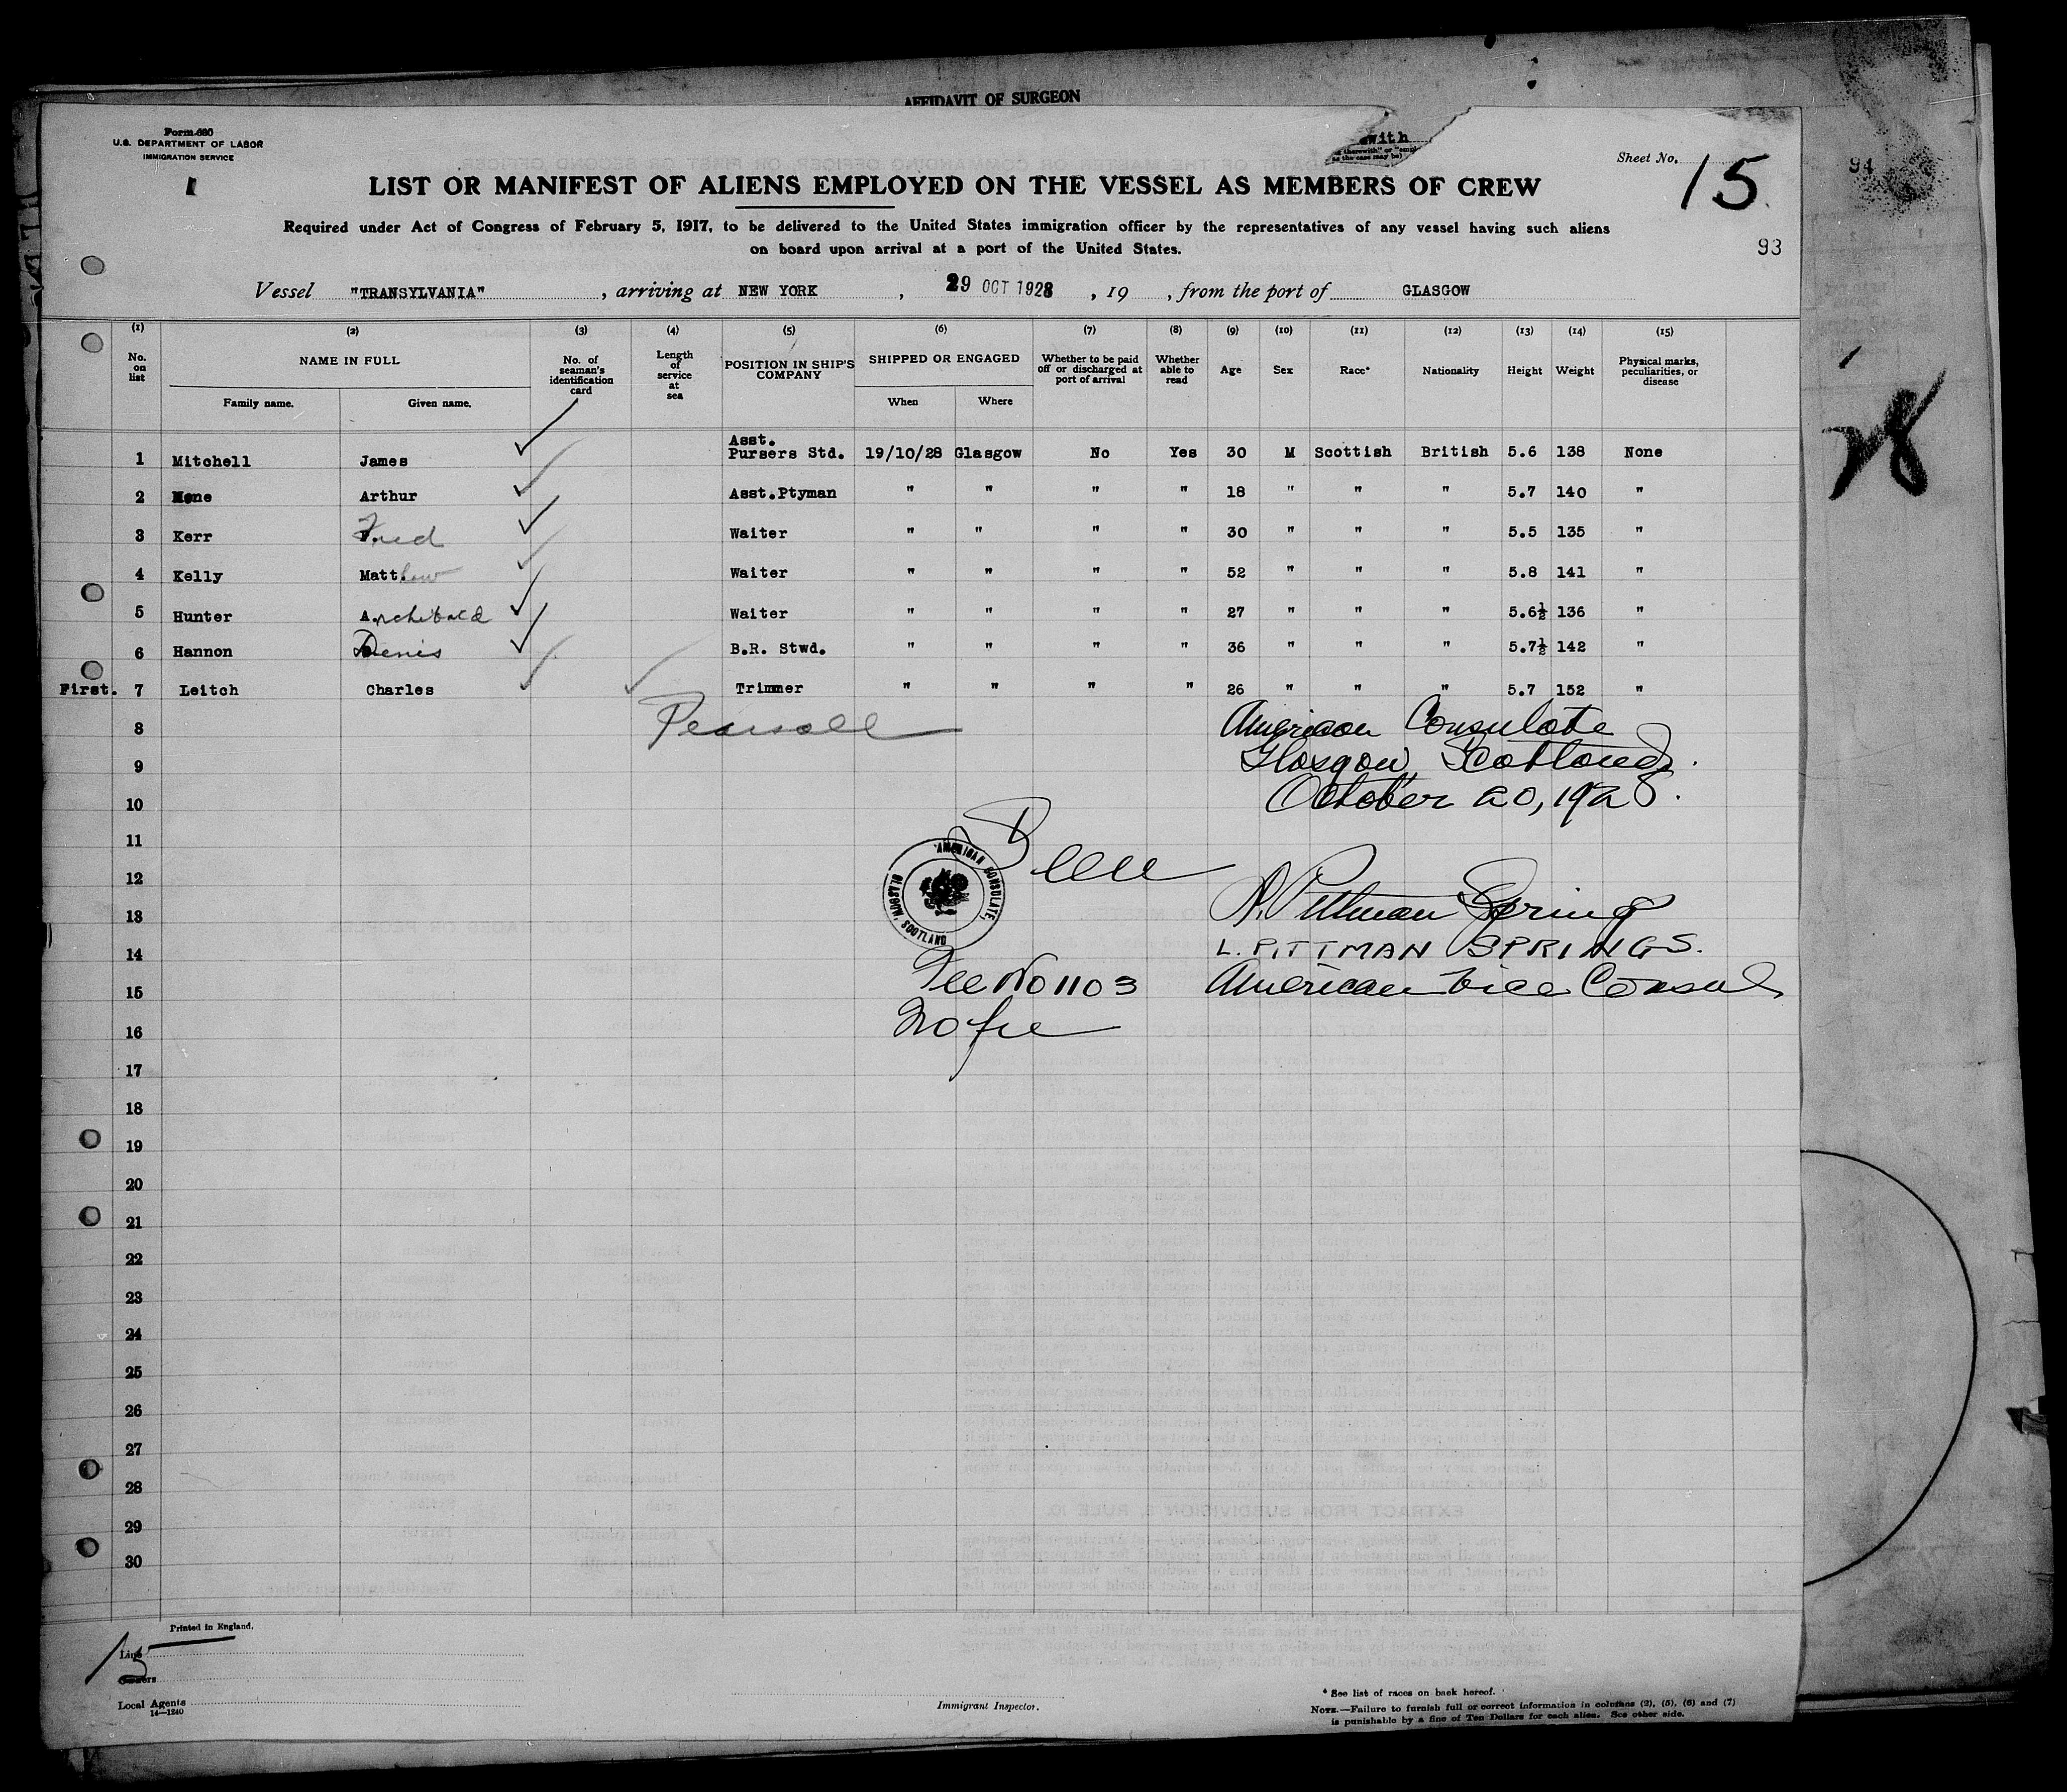 AFFIDAVIT OF SURGEON
with
Form 680
U.S. DEPARTMENT OF LABOR
IMMIGRATION SERVICE
Sheet No. 15
94
LIST OR MANIFEST OF ALIENS EMPLOYED ON THE VESSEL AS MEMBERS OF CREW
Required under Act of Congress of February 5, 1917, to be delivered to the United States immigration officer by the representatives of any vessel having such aliens
on board upon arrival at a port of the United States.
93
Vessel "TRANSYLVANIA", arriving at NEW YORK, 29 OCT 1928, 19 , from the port of GLASGOW
(1) (2) (3) (4) (5) (6) (7) (8) (9) (10) (11) (12) (13) (14) (15)
No. on list NAME IN FULL Family name. Given name. No. of seaman's identification card Length of service at sea POSITION IN SHIP'S COMPANY SHIPPED OR ENGAGED When Where Whether to be paid off or discharged at port of arrival Whether able to read Age Sex Race* Nationality Height Weight Physical marks, peculiarities, or disease
1 Mitchell James Asst. Pursers Std. 19/10/28 Glasgow No Yes 30 M Scottish British 5.6 138 None
2 Mone Arthur Asst.Ptyman " " " " 18 " " " 5.7 140 "
3 Kerr Fred Waiter " " " " 30 " " " 5.5 135 "
4 Kelly Matthew Waiter " " " " 52 " " " 5.8 141 "
5 Hunter Archibald Waiter " " " " 27 " " " 5.6½ 136 "
6 Hannon Denis B.R. Stwd. " " " " 36 " " " 5.7½ 142 "
First. 7 Leitch Charles Trimmer " " " " 26 " " " 5.7 152 "
8 Pearsall American Consulate
9 Glasgow, Scotland.
10 October 20, 1928.
11
12
AMERICAN CONSULATE, GLASGOW, SCOTLAND
13 L. Pittman Springs
14 L. PITTMAN SPRINGS.
15 Fee No 1103 American Vice Consul
16 No fee
17
18
19
20
21
22
23
24
25
26
27
28
29
30
28
Printed in England.
15
Line
Owners
Local Agents
14—1240
Immigrant Inspector.
* See list of races on back hereof.
NOTE.—Failure to furnish full or correct information in columns (2), (5), (6) and (7)
is punishable by a fine of Ten Dollars for each alien. See other side.